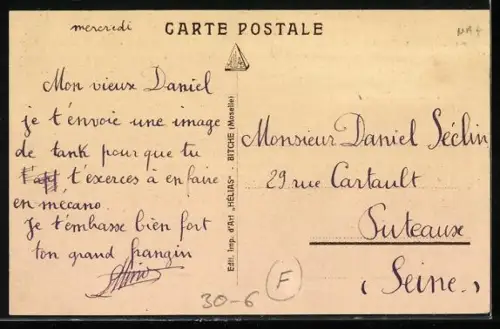 mercredi
CARTE POSTALE
Mon vieux Daniel
je t'envoie une image
de tank pour que tu
t'exerces à en faire
en mécano.
Je t'embasse bien fort
ton grand frangin
Edit. Imp. d'Art „HÉLIAS" . BITCHE (Moselle)
Monsieur Daniel Séclin
29 rue Cartault
Puteaux
(Seine)
30-6
F